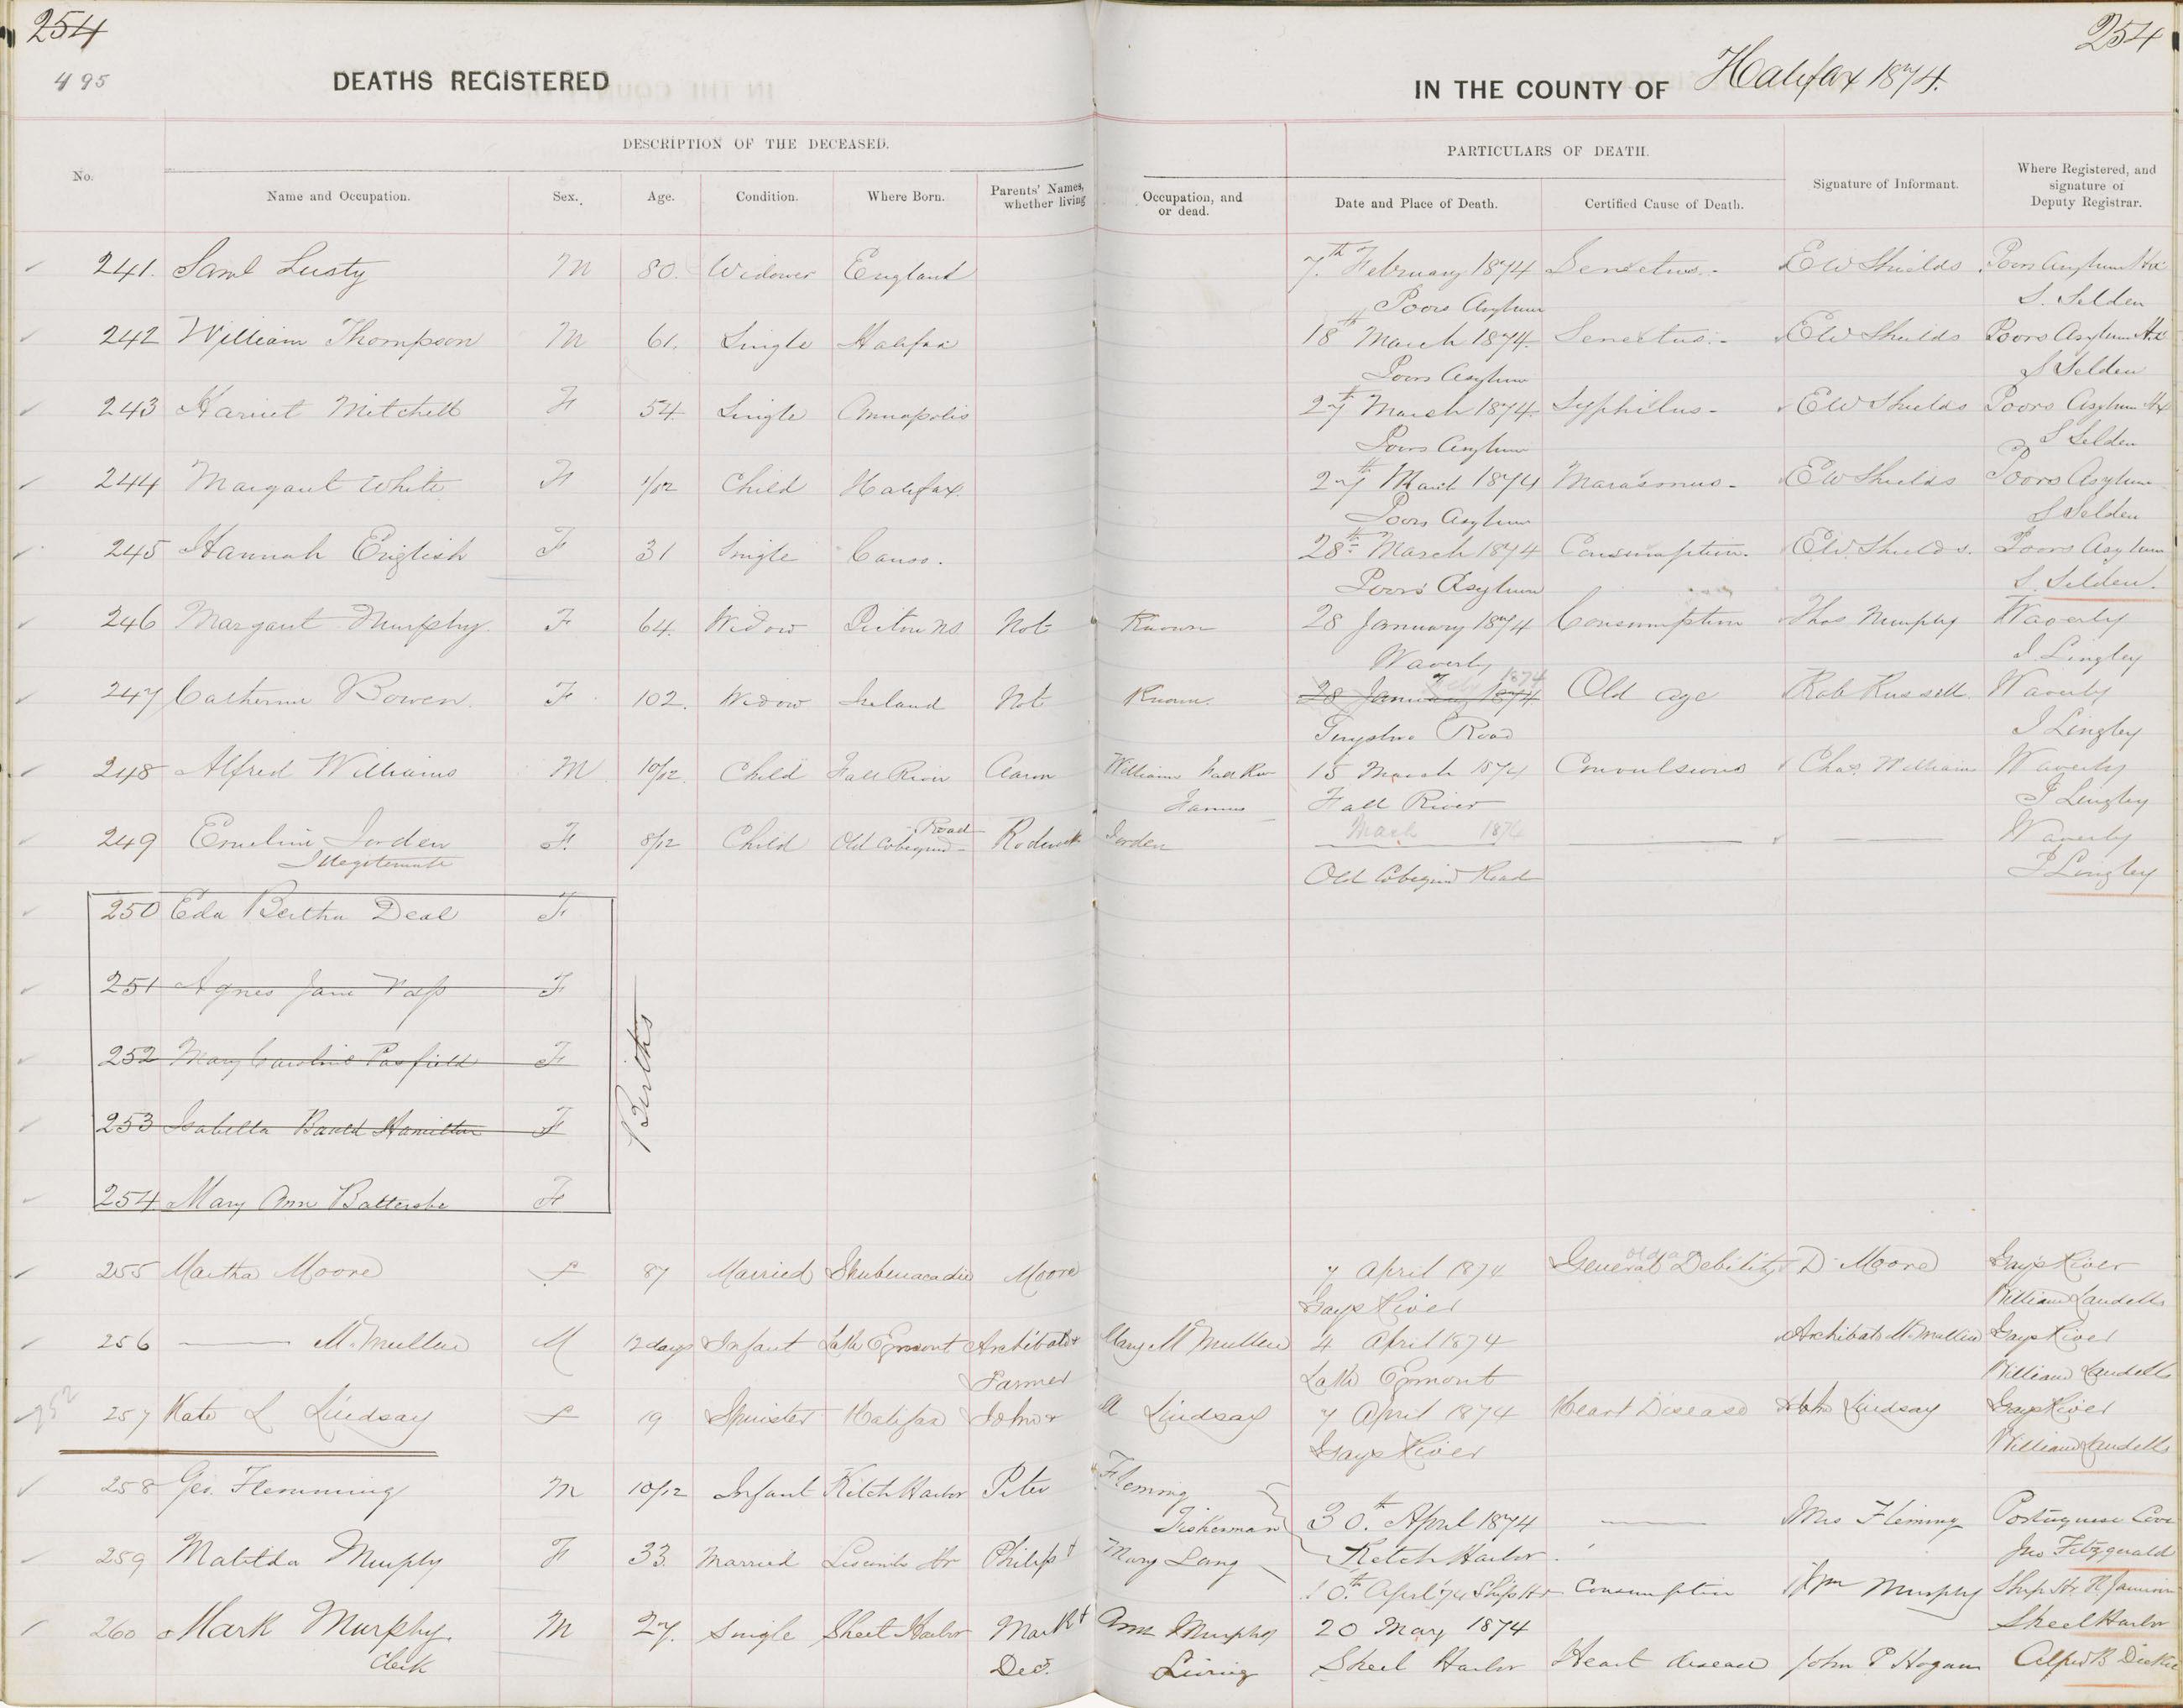 254
254
495
DEATHS REGISTERED
IN THE COUNTY OF Halifax 1874.
DESCRIPTION OF THE DECEASED.
PARTICULARS OF DEATH.
No.
Name and Occupation.
Sex.
Age.
Condition.
Where Born.
Parents' Names, whether living
Occupation, and or dead.
Date and Place of Death.
Certified Cause of Death.
Signature of Informant.
Where Registered, and signature of Deputy Registrar.
241. Saml Lusty M 80. Widower England 7th February 1874 Senectus.- EW Shields Poors Asylum Hx
Poors Asylum S. Selden
242 William Thompson M 61. Single Halifax 18th March 1874. Senectus.- EW Shields Poors Asylum Hx
Poors Asylum S Selden
243 Harriet Mitchell F 54. Single Annapolis 27th March 1874. Syphilus- EW Shields Poors Asylum Hx
Poors Asylum S Selden
244 Margaret White F 1/12 Child Halifax. 27th March 1874 Marasmus- EW Shields Poors Asylum
Poors Asylum S Selden
245 Hannah English F 31 Single Canso. 28th March 1874 Consumption. EW. Shields. Poors Asylum
Poors' Asylum S. Selden.
246 Margaret Murphy. F 64. Widow Pictou NS Not Known 28 January 1874 Consumption Thos Murphy Waverly
Waverly J. Lingley
1874
247 Catherine Bowen. F 102. Widow Ireland Not Known. 28 January 1874. Old age Rob Russell. Waverly
Road J Lingley
248 Alfred Williams M 10/12 Child Fall River Aaron Williams Fall River 15 March 1874 Convulsions Chas. William Waverly
Farmer Fall River J Lingley
249 Emeline Jorden F. 8/12 Child Old Cobequid Road Roderick Jorden March 1874 Waverly
Illegitemate Old Cobequid Road J Lingley
250 Eda Bertha Deal F
251 Agnes Jane F
252 Mary Caroline Pasfield F
253 Isabella Bauld Hamilton F
Births
254 Mary Ann Battersbe F
old age
255 Martha Moore f 87 Married Shubenacadie Moore 7 April 1874 General Debility D. Moore Gays River
Gays River William Landells
256 McMullen M 12 days Infant Lake Egmont Archibald + Mary McMullen 4 April 1874 Archibald McMullen Gays River
Farmer Lake Egmont William Landells
252
257 Kate L Lindsay f 19 Spinster Halifax John + A Lindsay 7 April 1874 Heart Disease John Lindsay Gays River
Gays River William Landells
258 Geo. Flemming M 10/12 Infant Ketch Harbor Peter Fleming
Fiskerman 30.th April 1874 Mrs Fleming Portuguese Cove
259 Matilda Murphy F 33. Married Liscomb Hr Philip + Mary Lang Ketch Harbor. Jno Fitzgerald
10.th April '74 Ship Hr Consumption Wm Murphy Ship Hr
260 Mark Murphy. M 27. Single Sheet Harbor Mark + Ann Murphy 20 May 1874 Sheet Harbor
Clerk Decd. Living Sheet Harbor Heart disease John P Hogan Alfred B Dickie